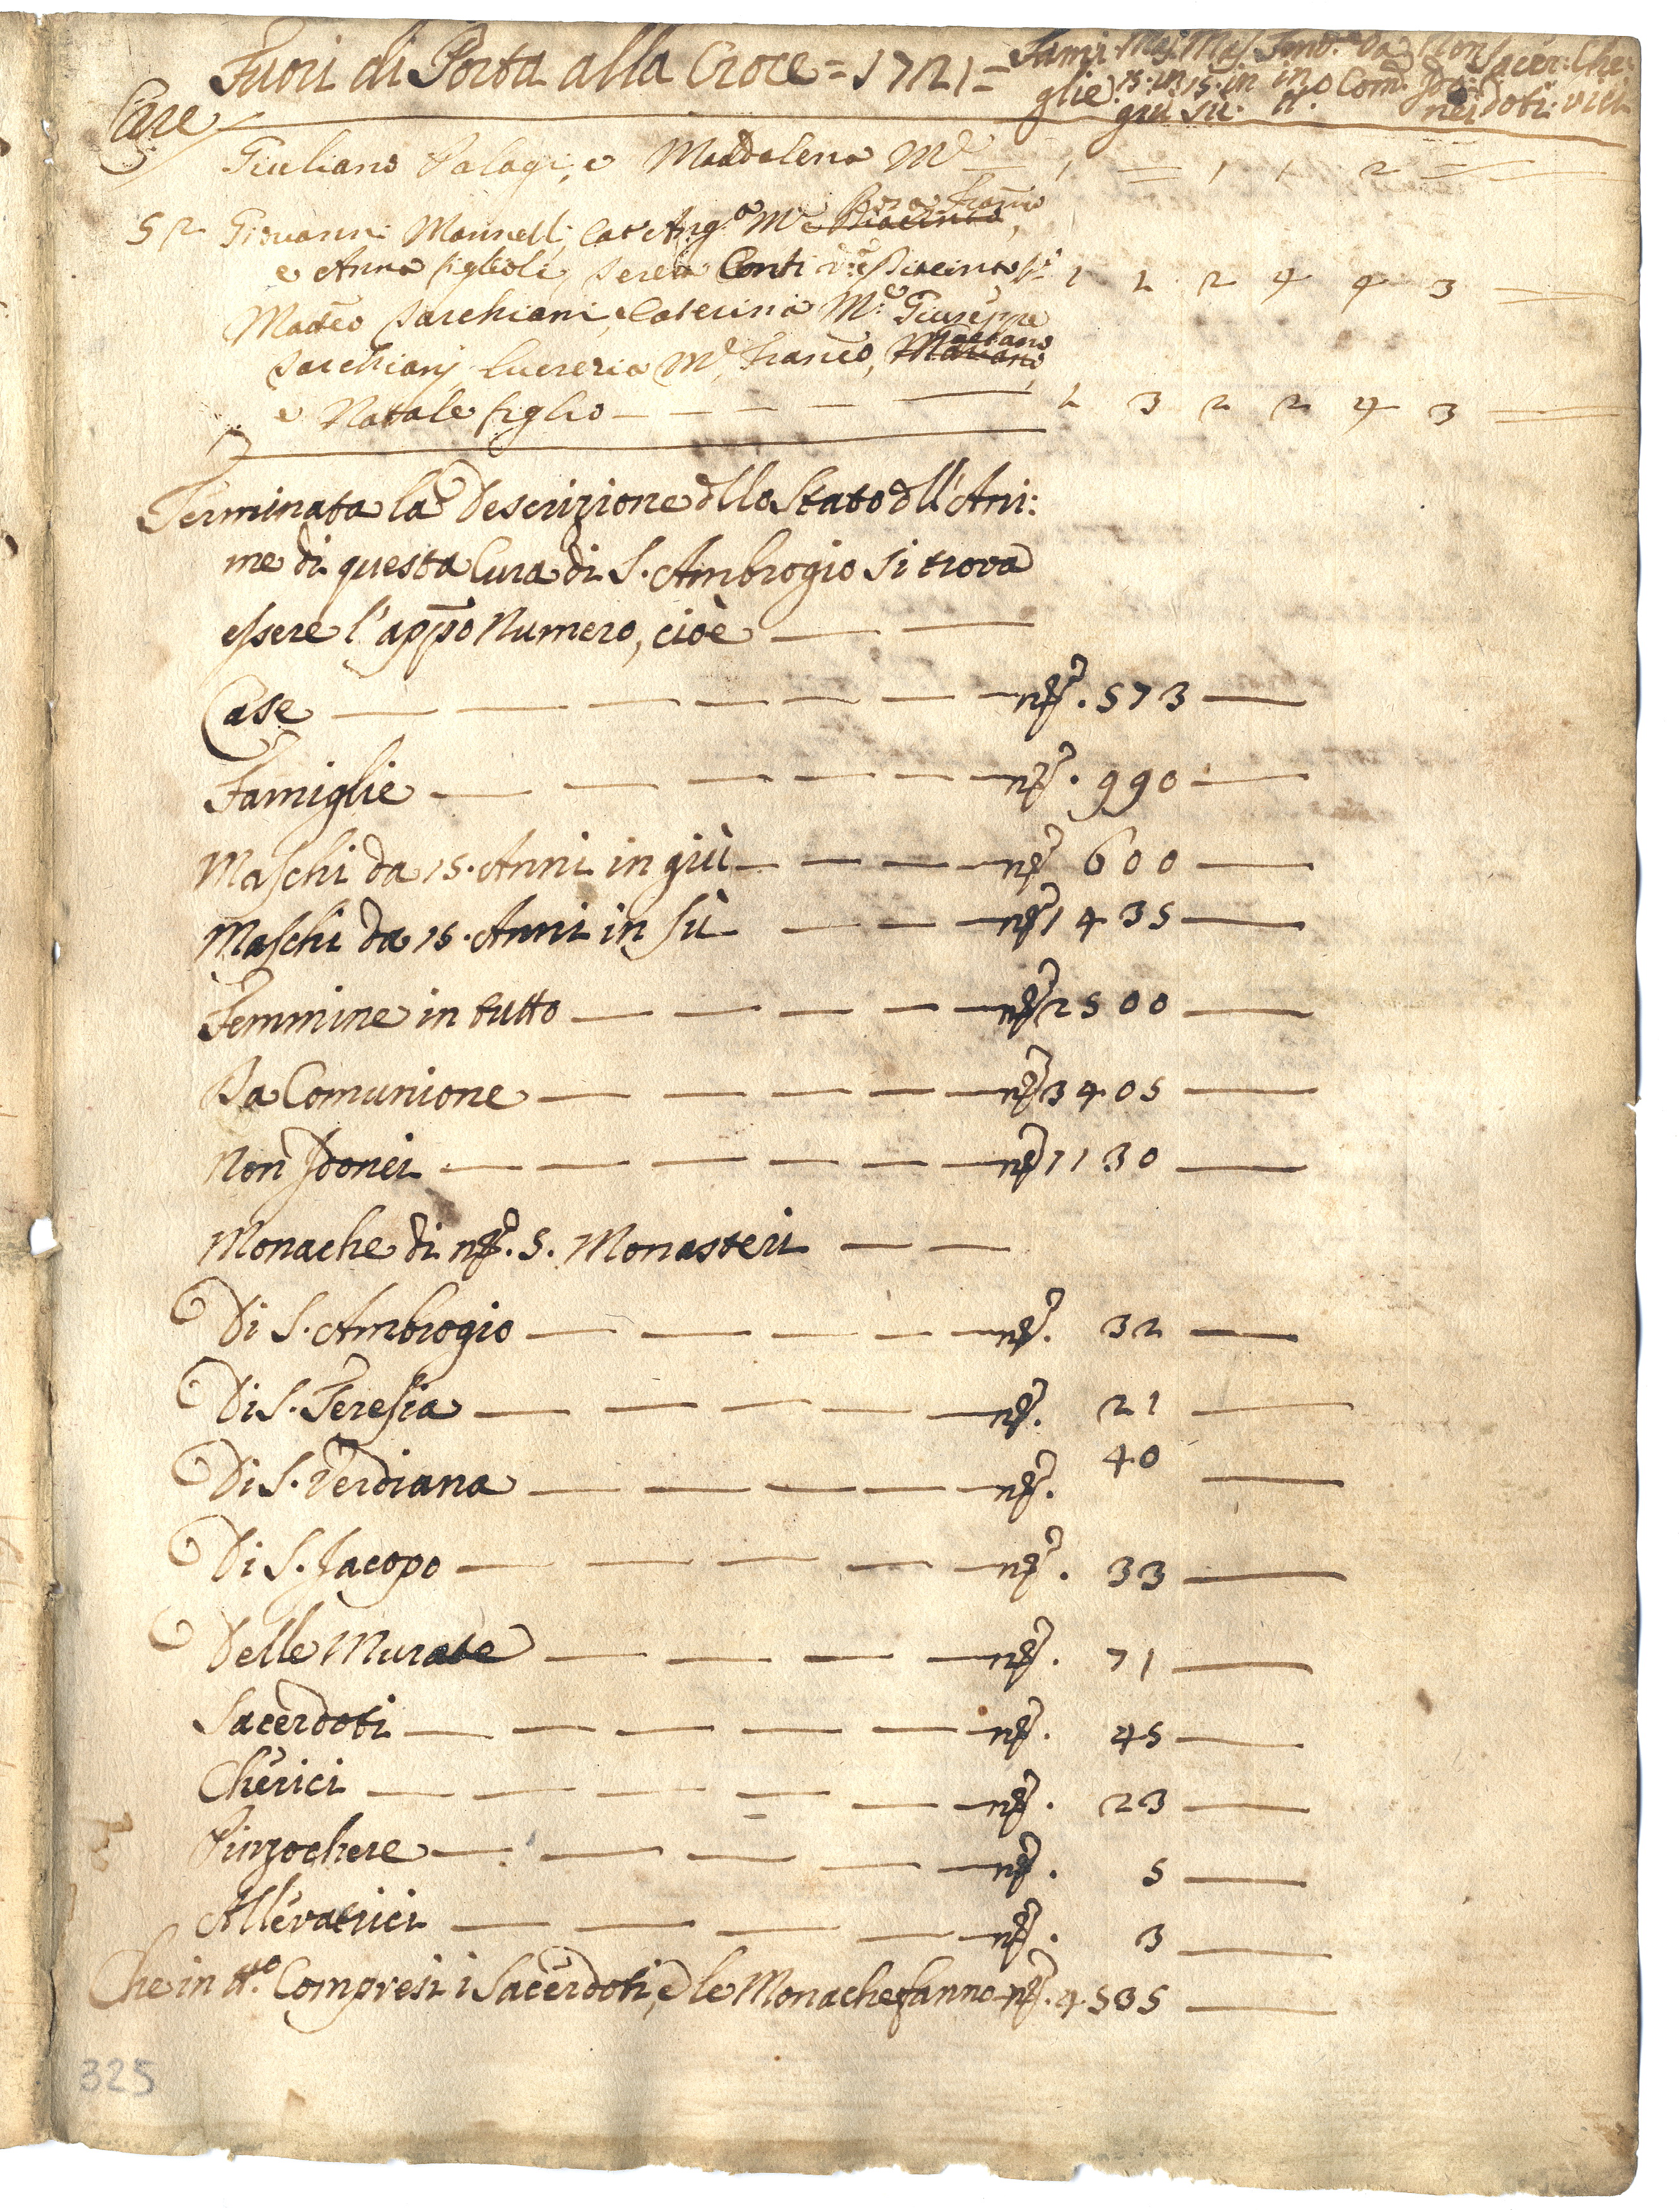 Fuori di Porta alla Croce = 1721 = Fami: Mas. Mas. Fem.e Da Non Sacer: Che:
glie. 15. in 15. in in Com. Ido: 
giu su. tt.o nei doti. rici
Case
Giuliano Palagi, e Madalena M.e — 1 = 1 1 2 = =
52 Giovanni Mannelli, Cat Ang.a M.e
e Anna figlioli, Conti 1 1 2 4 4 3 =
Matteo Sarchiani, e Caterina M.e Giuseppe
Gaetano
Sarchianj, Lucrezia M.e, Franco,
e Natale figlio — — — — 1 3 2 2 4 3 =
Terminata la Descrizione dllo Stato dll'Ani:
me di questa Cura di S. Ambrogio si trova
essere l'appo Numero, cioè — —
Case — — — — — — no. 573 —
Famiglie — — — — — — no. 990 —
Maschi da 15. Anni in giù — — — no 600 —
Maschi da 15. Anni in sù — — — no 1435 —
Femmine in tutto — — — — — no 2500 —
Da Comunione — — — — — no 3405 —
Non Idonei — — — — — — no 1130 —
Monache di no. 5. Monasteri — —
Di S. Ambrogio — — — — — no. 32 —
Di S. Teresia — — — — — no. 21 —
Di S. Verdiana — — — — — no. 40 —
Di S. Jacopo — — — — — no. 33 —
Delle Murate — — — — no. 71 —
Sacerdoti — — — — — — no. 45 —
Cherici — — — — — — no. 23 —
Pinzochere — — — — — no. 5 —
Allevatrici — — — — — no. 3 —
Che in tt.o Compresi i Sacerdoti, e le Monache fanno no. 4535 —
325